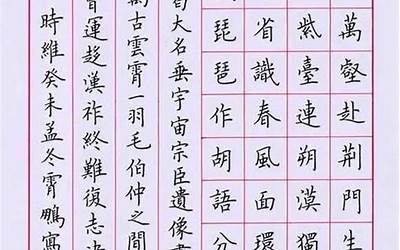 萬壑赴荊門生
紫臺連朔漠獨
省識春風面環
琵琶作胡語分
大名垂宇宙宗臣遺像肅
萬古雲霄一羽毛伯仲之間
運趍漢祚終難復志决
時維癸未孟冬霄鵬寫